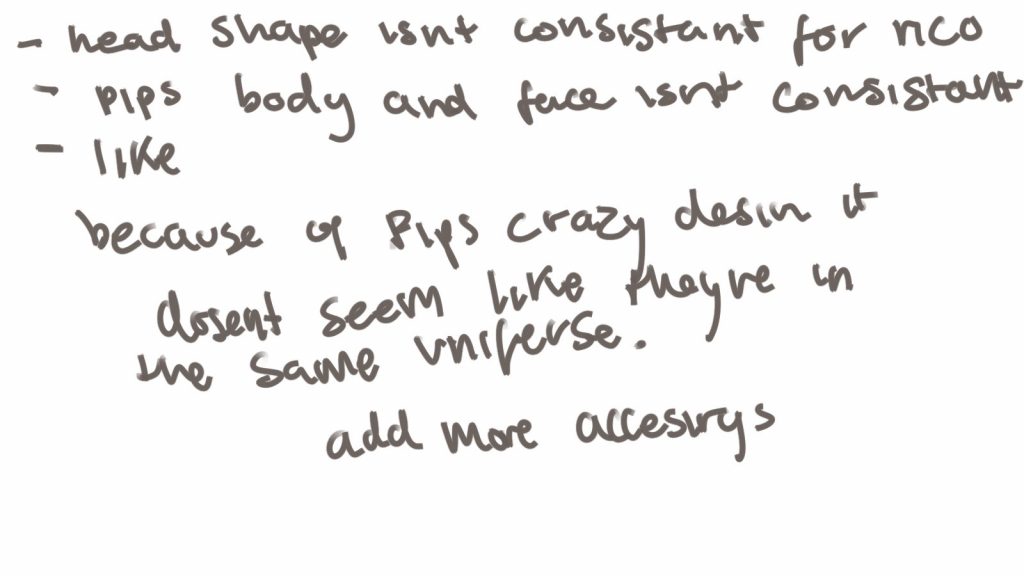 - head shape isnt consistant for nco
- pips body and face isnt consistant
- like
because of Pips crazy desin it
dosent seem like theyre in
the same uniferse.
add more accesirys